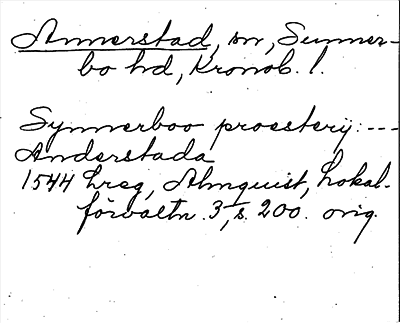 Annerstad, sn, Sunner-
bo hd, Kronob. l.
Synnerboo proesterij: ---
Anderstada
1544 Lreg, Almquist, Lokal-
förvaltn. 3, s. 200. orig.